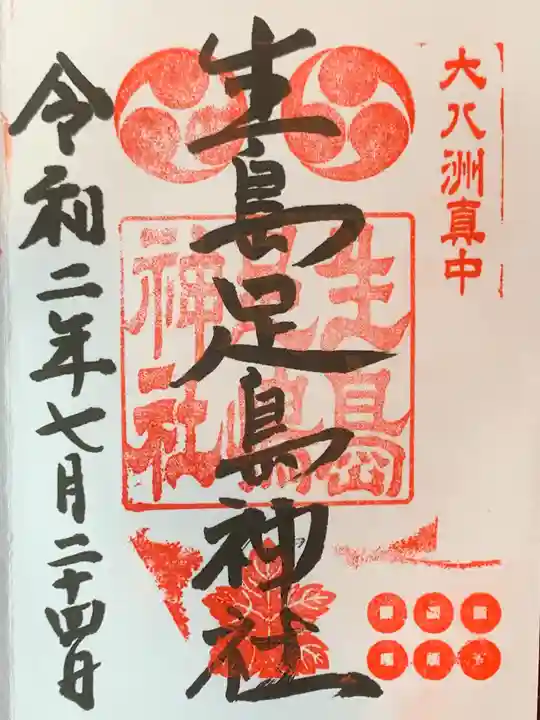 大八洲真中
生島足島神社
生島
足島
神社
令和二年七月二十四日